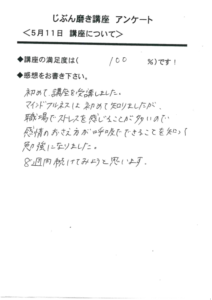 じぶん磨き講座 アンケート
<5月11日 講座について>
◆講座の満足度は( 100 %)です!
◆感想をお書き下さい。
初めて講座を受講しました。
マインドフルネスは初めて知りましたが、
職場でストレスを感じることが多いので
感情のおさえ方が呼吸でできることを知って
勉強になりました。
8週間続けてみようと思います。